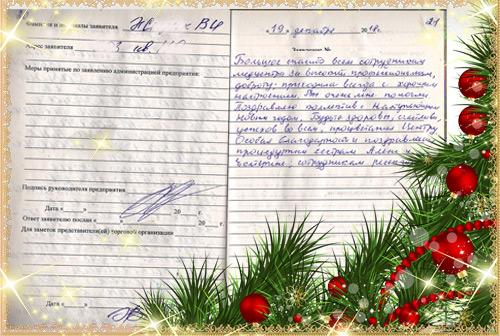 Фамилия и инициалы заявителя
Адрес заявителя
Меры принятые по заявлению администрацией предприятия:
Подпись руководителя предприятия
Дата « » 20 г.
Ответ заявителю послан « » 20 г.
Для заметок представителя(ей) торговой организации
Дата « »
21
« 19 » декабря 20 г.
Заявление №
Большое спасибо всем сотрудникам
медцентра за высокий профессионализм,
доброту; приходила всегда с хорошим
настроением. Вы очень мне помогли.
Поздравляю коллектив с Наступающим
Новым годом. Будьте здоровы, счастливы,
успехов во всём, процветания Центру.
Особая благодарность и поздравления
процедурным сёстрам Алёне и
Екатерине, сотрудникам